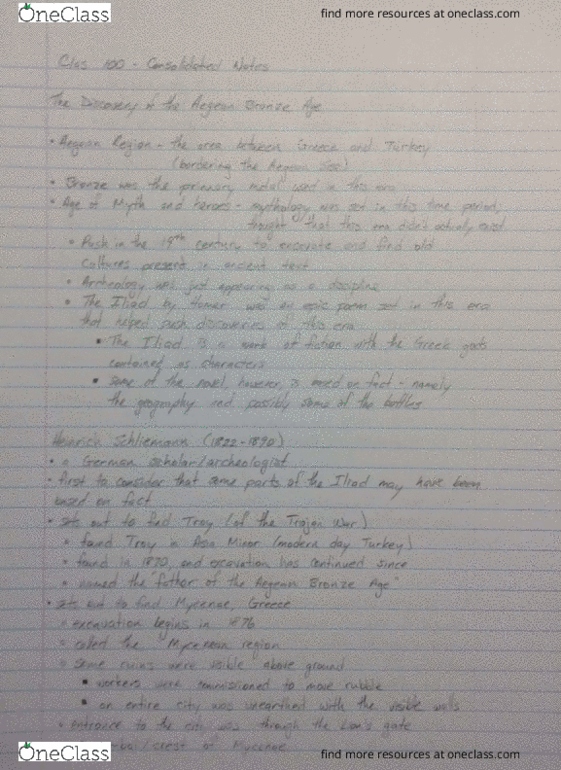 OneClass
find more resources at oneclass.com
Clas 100 - Consolidated Notes
The Discovery of the Aegean Bronze Age
• Aegean Region - the area between Greece and Turkey
(bordering the Aegean Sea)
• Bronze was the primary metal used in this era
• Age of Myth and heroes - mythology was set in this time period,
thought that this era didn't actually exist
• Push in the 19th century to excavate and find old
cultures present in ancient text
• Archeology was just appearing as a discipline
• The Iliad by Homer was an epic poem set in this era
that helped push discoveries of this era
• The Iliad is a work of fiction with the Greek gods
contained as characters
• some of the novel, however, is based on fact - namely
the geography and possibly some of the battles
Heinrich Schliemann (1822-1890)
• a German scholar/archeologist
• first to consider that some parts of the Iliad may have been
based on fact
• sets out to find Troy (of the Trojan War)
• found Troy in Asia Minor (modern day Turkey)
• found in 1870, and excavation has continued since
• named the "father of the Aegean Bronze Age"
• sets out to find Mycenae, Greece
• excavation begins in 1876
• called the Mycenean region
• some ruins were visible above ground
• workers were commissioned to move rubble
• an entire city was unearthed with the visible walls
• entrance to the city was through the Lion's gate
/crest of Mycenae
OneClass
find more resources at oneclass.com